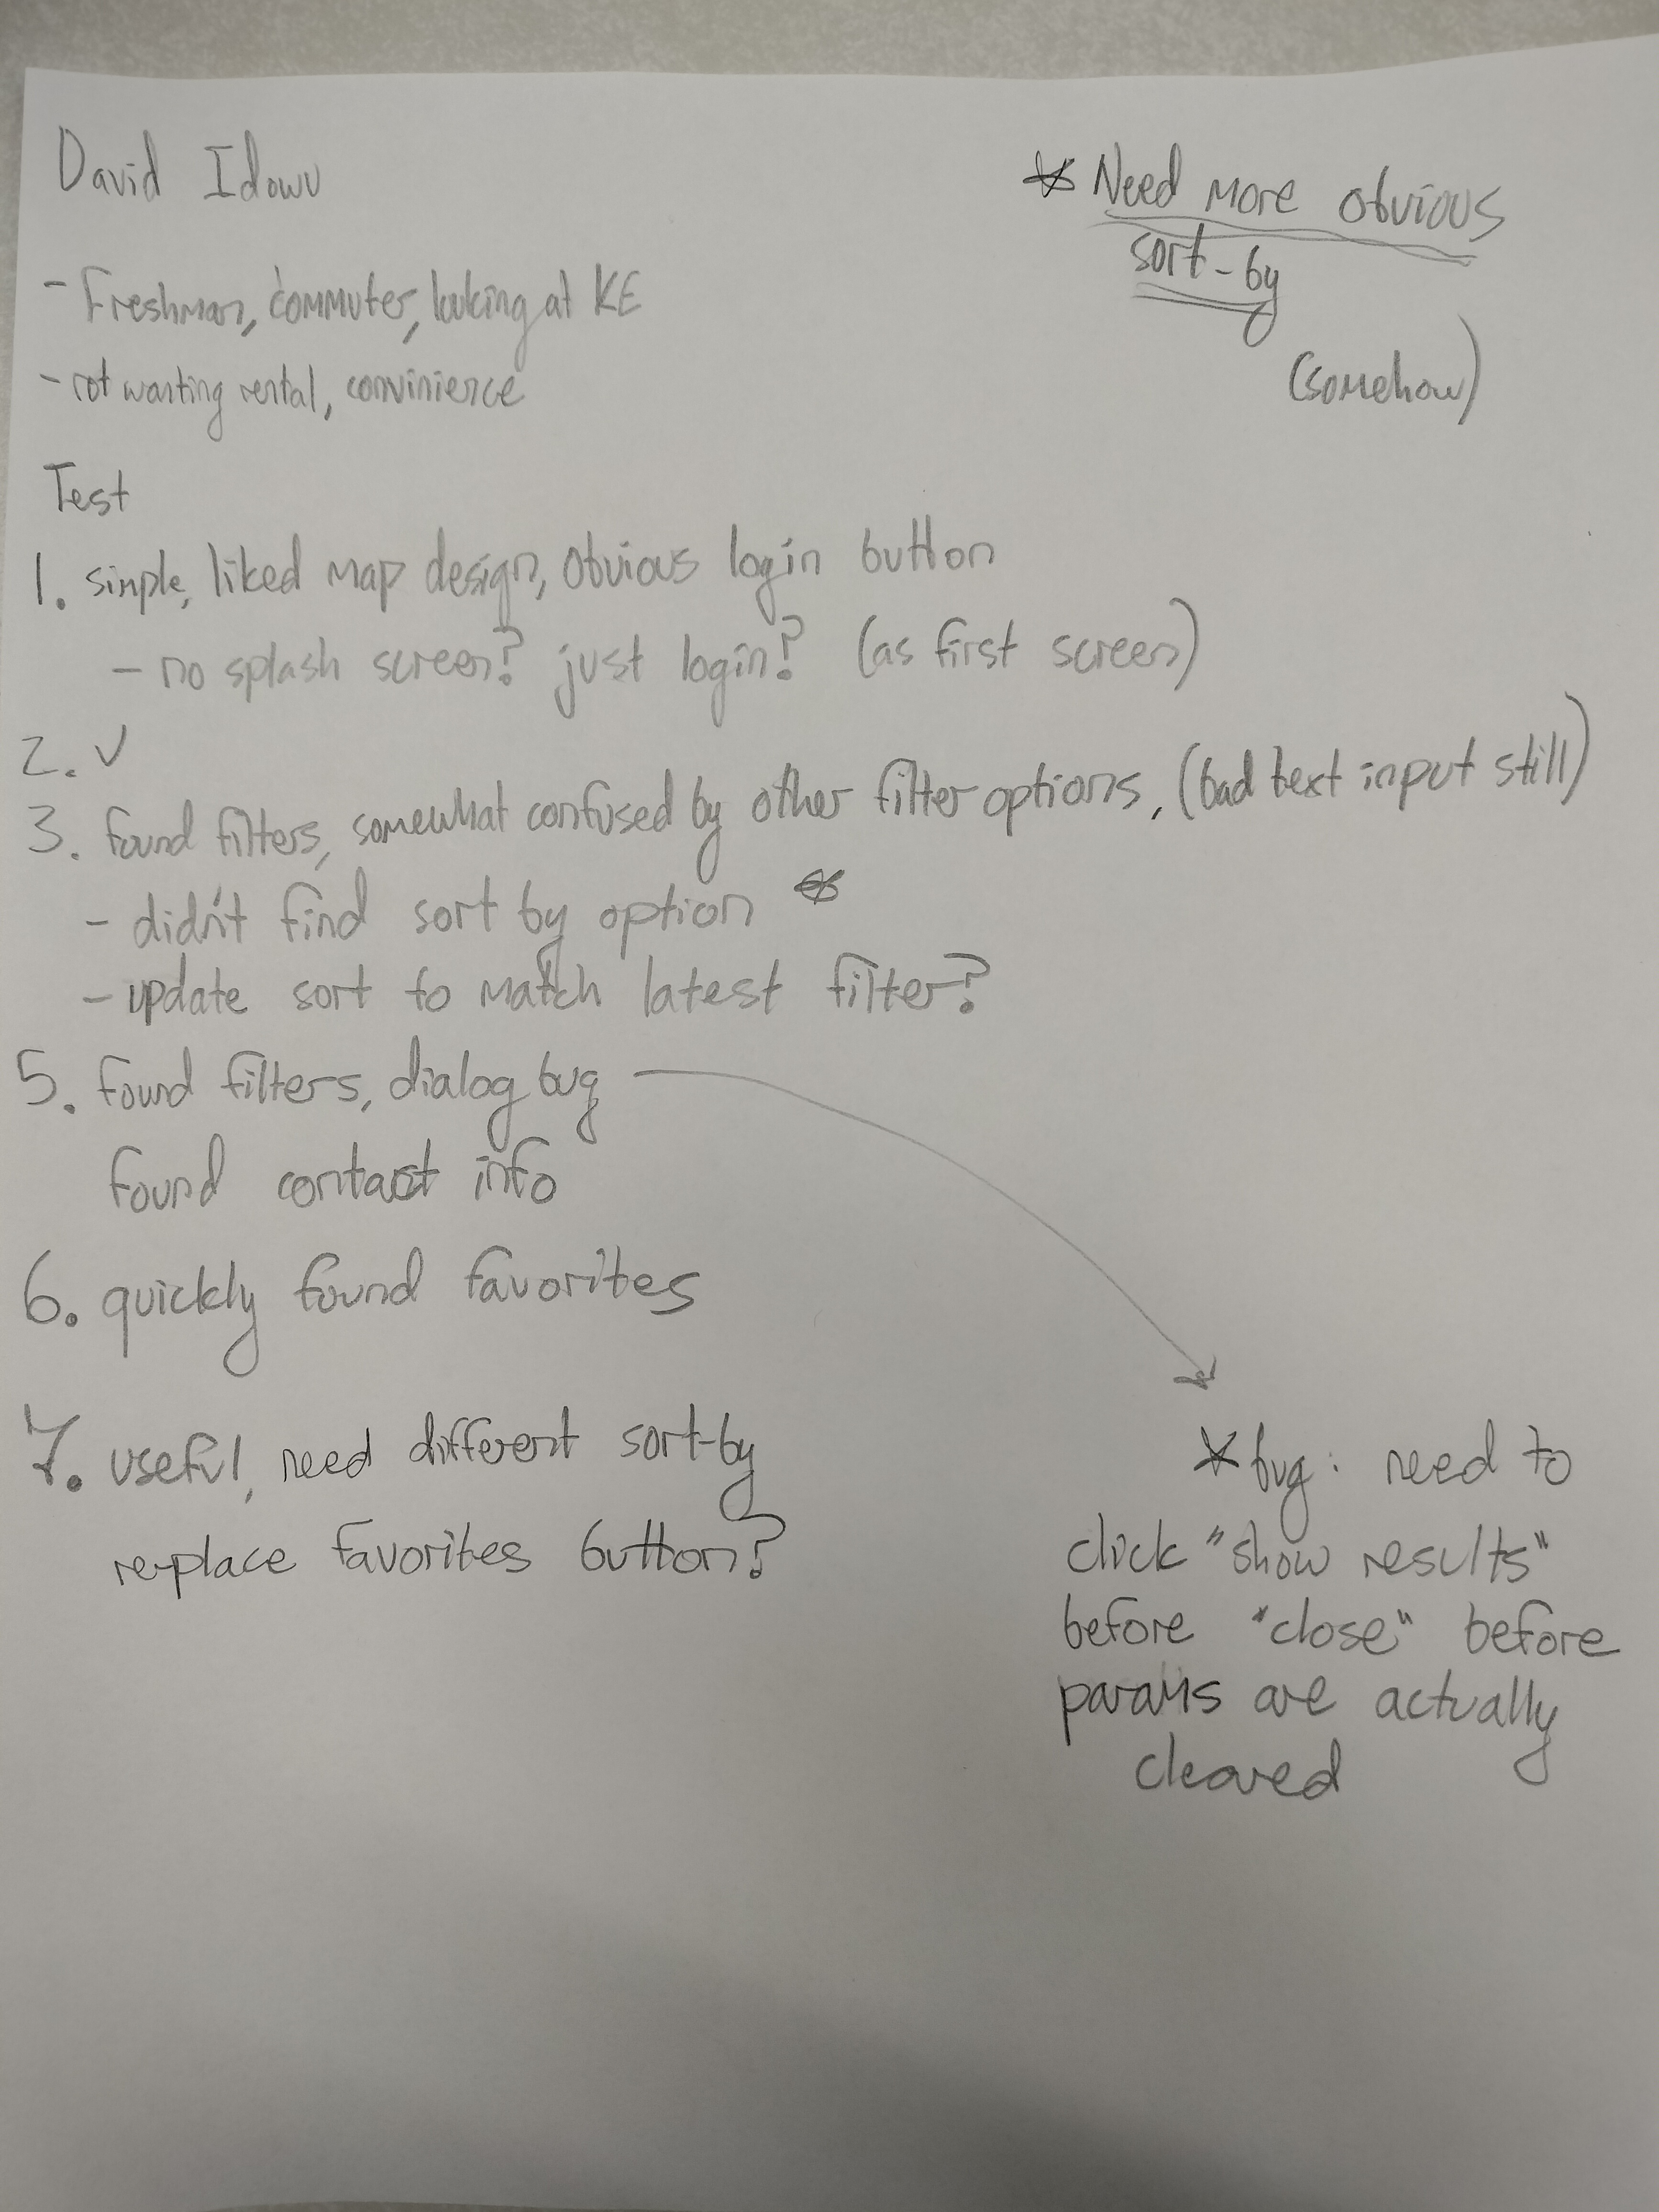 David Idowu
- Freshman, commuter, looking at KE
- not wanting rental, convinience
* Need more obvious
sort-by
(somehow)
Test
1. simple, liked map design, obvious login button
- no splash screen? just login? (as first screen)
2. ✓
3. found filters, somewhat confused by other filter options, (bad text input still)
- didn't find sort by option *
- update sort to match latest filter?
5. found filters, dialog bug
found contact info
6. quickly found favorites
7. useful, need different sort-by
replace favorites button?
* bug: need to
click "show results"
before "close" before
params are actually
cleared